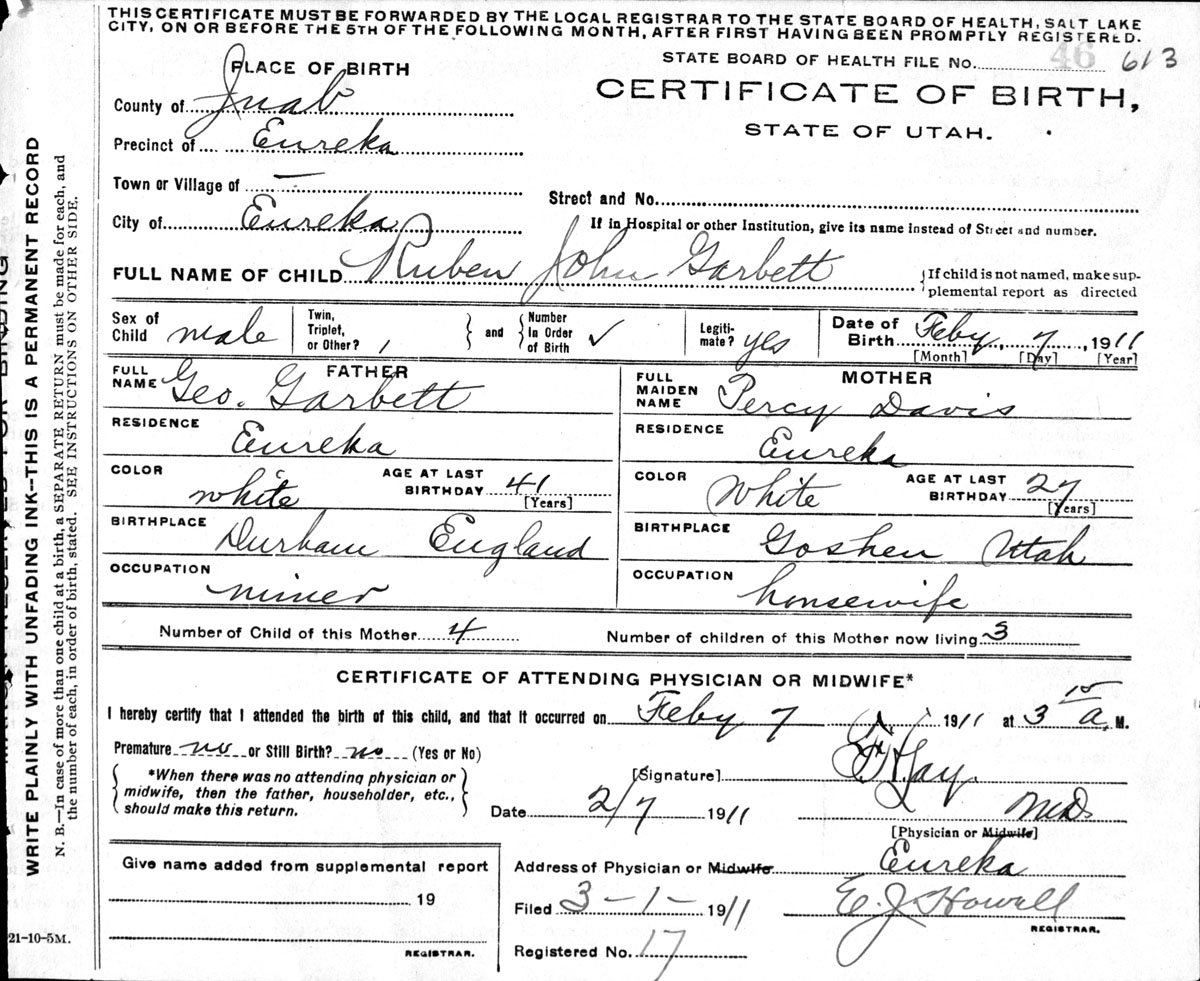 THIS CERTIFICATE MUST BE FORWARDED BY THE LOCAL REGISTRAR TO THE STATE BOARD OF HEALTH, SALT LAKE
CITY, ON OR BEFORE THE 5TH OF THE FOLLOWING MONTH, AFTER FIRST HAVING BEEN PROMPTLY REGISTERED.
STATE BOARD OF HEALTH FILE No. 46 613
PLACE OF BIRTH
CERTIFICATE OF BIRTH,
STATE OF UTAH.
County of Juab
Precinct of Eureka
Town or Village of —
Street and No.
City of Eureka
If in Hospital or other Institution, give its name instead of Street and number.
FULL NAME OF CHILD Ruben John Garbett
{If child is not named, make sup-
plemental report as directed
Sex of Child male
Twin, Triplet, or Other? 1
and
Number In Order of Birth ✓
Legiti-mate? yes
Date of Birth Feby 7, 1911
[Month] [Day] [Year]
FATHER
FULL NAME Geo. Garbett
MOTHER
FULL MAIDEN NAME Percy Davis
RESIDENCE Eureka
RESIDENCE Eureka
COLOR white
AGE AT LAST BIRTHDAY 41
[Years]
COLOR White
AGE AT LAST BIRTHDAY 27
[Years]
BIRTHPLACE Durham England
BIRTHPLACE Goshen Utah
OCCUPATION miner
OCCUPATION housewife
Number of Child of this Mother 4
Number of children of this Mother now living 3
CERTIFICATE OF ATTENDING PHYSICIAN OR MIDWIFE*
I hereby certify that I attended the birth of this child, and that it occurred on Feby 7 1911 at 3 15 A. M.
Premature no or Still Birth? no (Yes or No)
*When there was no attending physician or
midwife, then the father, householder, etc.,
should make this return.
[Signature]
Date 2/7 1911
M.D.
[Physician or Midwife]
Give name added from supplemental report
19
REGISTRAR.
Address of Physician or Midwife Eureka
Filed 3-1- 1911 E. J. Howell
REGISTRAR.
Registered No. 17
21-10-5M.
WRITE PLAINLY WITH UNFADING INK--THIS IS A PERMANENT RECORD
N. B.—In case of more than one child at a birth, a SEPARATE RETURN must be made for each, and
the number of each, in order of birth, stated. SEE INSTRUCTIONS ON OTHER SIDE.